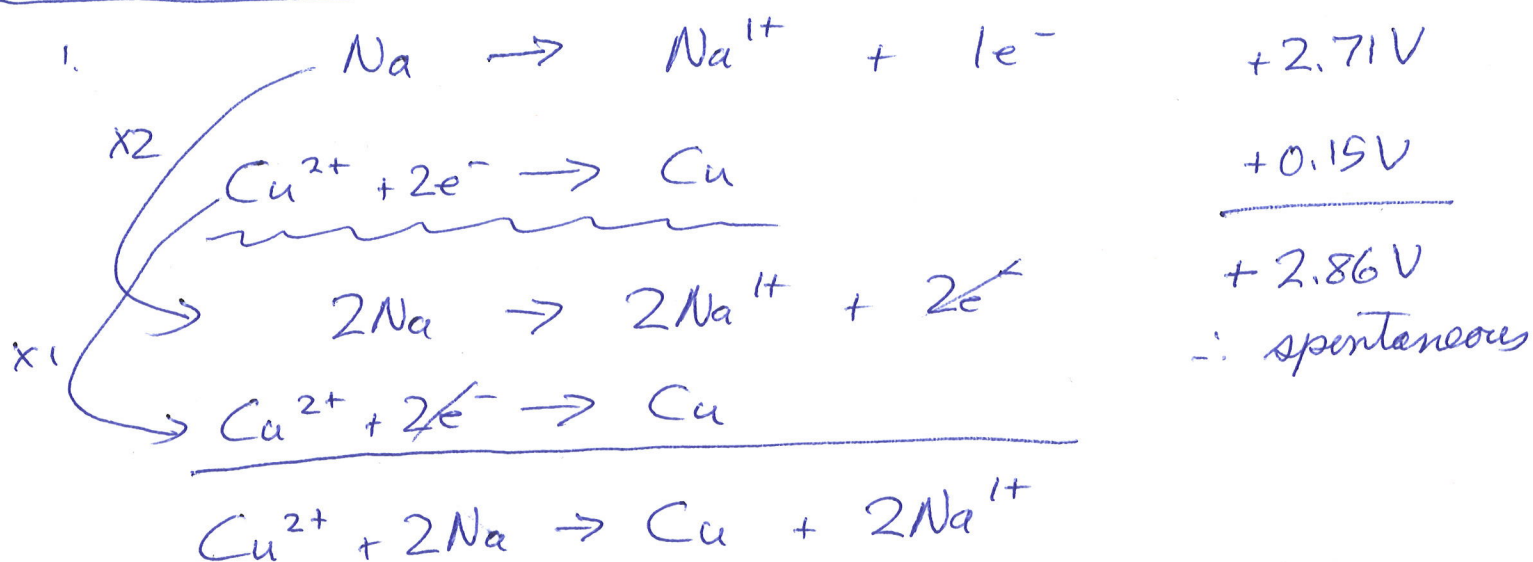 1. Na → Na¹⁺ + 1e⁻ +2.71V
x2
Cu²⁺ + 2e⁻ → Cu +0.15V
2Na → 2Na¹⁺ + 2e⁻ +2.86V
x1 ∴ spontaneous
Cu²⁺ + 2e⁻ → Cu
Cu²⁺ + 2Na → Cu + 2Na¹⁺